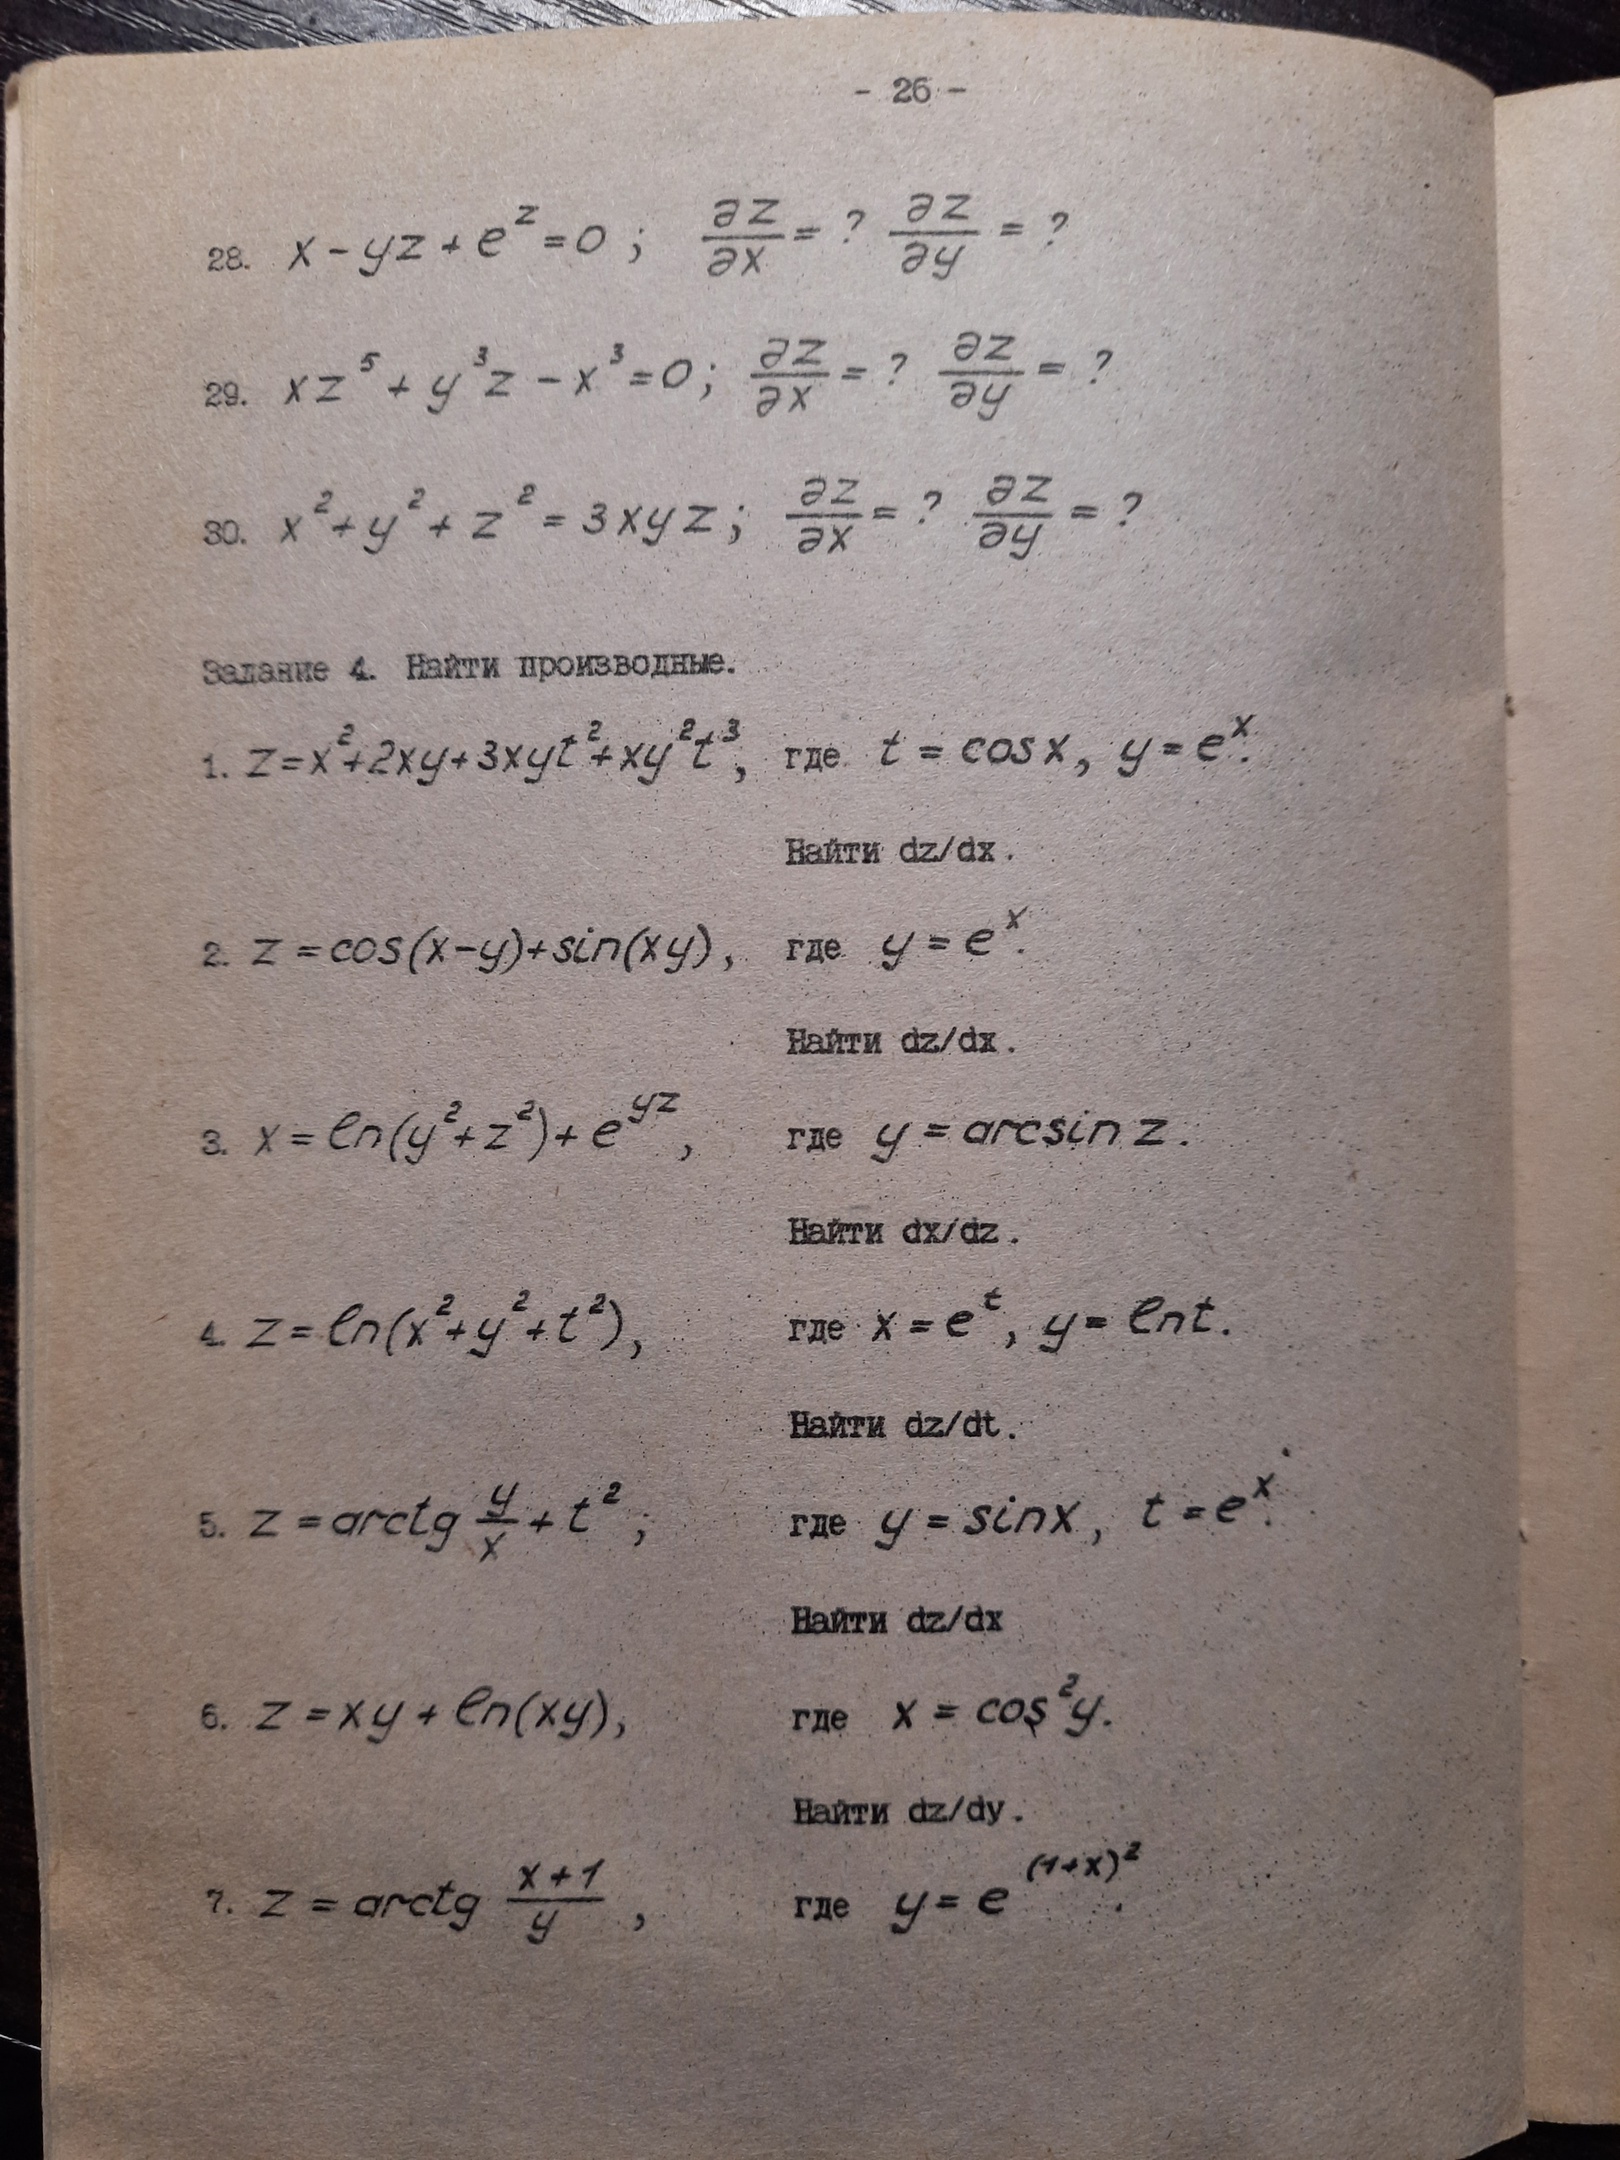 - 26 -
28. x - yz + e^z = 0 ; ∂z/∂x = ? ∂z/∂y = ?
29. xz^5 + y^3z - x^3 = 0; ∂z/∂x = ? ∂z/∂y = ?
30. x^2 + y^2 + z^2 = 3xyz; ∂z/∂x = ? ∂z/∂y = ?
Задание 4. Найти производные.
1. z = x^2 + 2xy + 3xyt^2 + xy^2t^3, где t = cosx, y = e^x.
Найти dz/dx.
2. z = cos(x-y) + sin(xy), где y = e^x.
Найти dz/dx.
3. x = ln(y^2 + z^2) + e^yz, где y = arcsin z.
Найти dx/dz.
4. z = ln(x^2 + y^2 + t^2), где x = e^t, y = lnt.
Найти dz/dt.
5. z = arctg y/x + t^2; где y = sinx, t = e^x.
Найти dz/dx
6. z = xy + ln(xy), где x = cos^2y.
Найти dz/dy.
7. z = arctg (x+1)/y, где y = e^(1+x)^2.